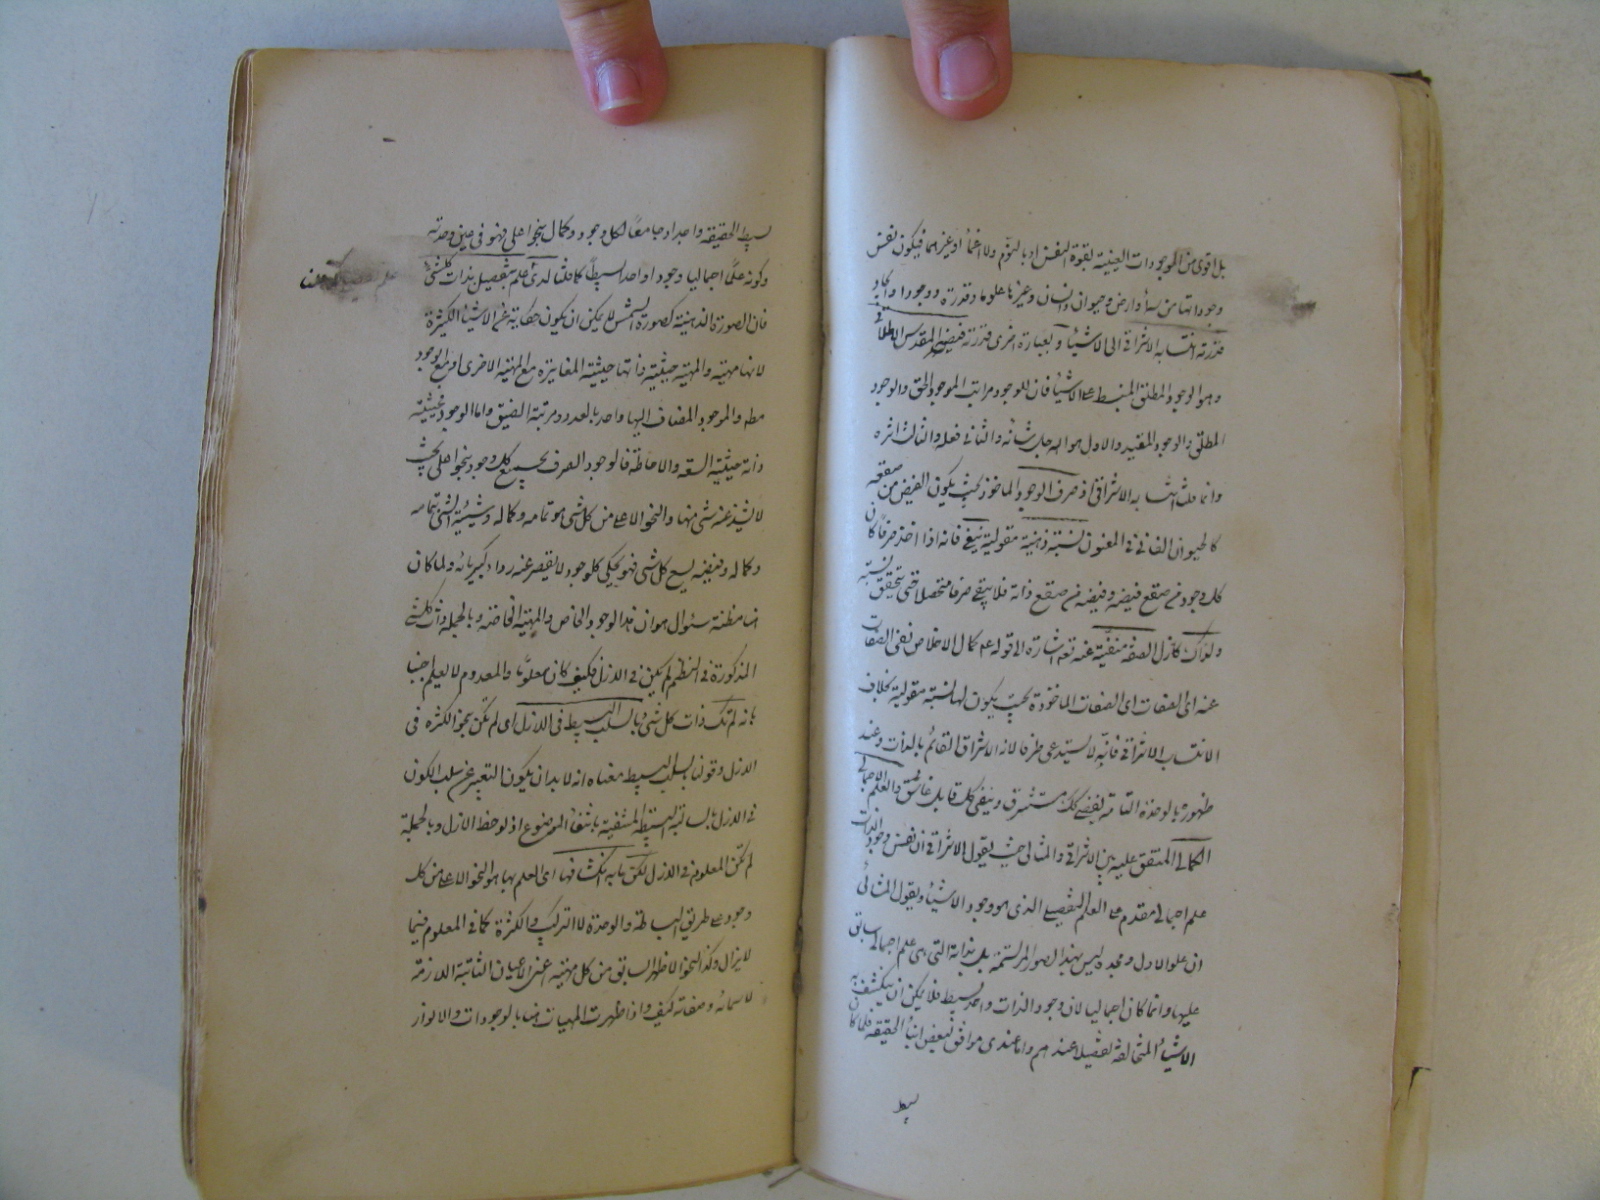 بل اقوى من الموجودات العينية بقوة النفس او بالنوم ولا اغماء او غيرهما فيكون نفس
وجوداتها من سماء وارض وحيوان وانسان وغيرها علوما وقدرة ووجودا وايجاد
قدرته انتسابه الاشراقى الى الاشياء وبعبارة اخرى قدرته فيضه المقدس الاطلاقى
وهو الوجود المطلق المنبسط على الاشياء فان للوجود مراتب الموجود الحق والوجود
المطلق والوجود المقيد والاول هو اله جل شأنه والثانى فعله والثالث اثره
وانما قلنا انتسابه الاشراقى اذ صرف الوجود الماخوذ بحيث يكون الفيض من صقعه
كالحيوان الفانى فى المعنون نسبة ذهنية مقولية ينبغى فانه اذا اخذ صرفا كان
كل وجود من صقع فيضه وفيضه من صقع ذاته فلا يبقى طرفا متحصلا حتى يتحقق نسبة
ولذلك كان الصفة منفية عنه تعه اشارة الى قوله عه كمال الاخلاص نفى الصفات
عنه اى الصفات اى الصفات الماخوذة بحيث يكون لها نسبة مقولية بخلاف
الانتساب الاشراقى فانه لا يستدعى طرفا لانه الاشراق القائم بالذات وعند
ظهوره بالوحدة التامة يفنى كل مستشرق وينفى كل قابل غاسق والعلم الاجمالى
الكمالى المتفق عليه بين الاشراقى والمشائى حيث يقول الاشراقى ان نفس وجود الذات
علم اجمالى مقدم على العلم التفصيلى الذى هو وجود الاشياء ويقول المشائى
ان علو الاول ومجده ليس بهذه الصور المرتسمة بل بذاته التى هى علم اجمالى سابق
عليها وانما كان اجماليا لان وجود الذات واحد بسيط فلا يمكن ان ينكشف به
الاشياء المتخالفة تفصيلا عندهم واما عندى موافق لبعض ابناء الحقيقة فلما كان
بسيط
بسيط الحقيقه واحدا وجامعا لكل وجود وكمال بنحو اعلى فهو فى عين وحدته
وكونه علما اجماليا وجودا واحدا بسيطا كما قلنا لدى علم بتفصيل بذات كل شئ
فان الصورة الذهنية كصورة الشمس لا يمكن ان يكون حكاية عن الاشياء الكثيرة
لانها مهية والمهية حيثية ذاتها حيثية المغايرة مع المهية الاخرى او مع الوجود
مطه والموجود المضاف اليها واحد بالعدد ومرتبة الضيق واما الوجود فحيثية
ذاته حيثية السعة والاحاطة فالوجود الصرف يحيى كل وجود بنحو اعلى بحيث
لا يشذ عنه شئ منها والنحو الاعلى من كل شئ هو تمامه وكماله وشيئية الشئ بتمامه
وكماله وفيضه يسع كل شئ فهو يحكى كل وجود لا يقصر عنه رداء كبريائه ولما كان
هنا مظنة سئوال هو ان هذا الوجود الخاص والمهية الخاصه وبالجملة ذات كل شئ
المذكورة فى النظم لم يكن فى الازل فكيف كان معلوما والمعدوم لا يعلم اجبنا
بانه لم تكن ذات كل شئ بالسلب البسيط فى الازل اى لم تكن بنحو الكثره فى
الازل وقولنا بالسلب البسيط معناه انه لا بد ان يكون التعبير عن سلب الكون
فى الازل بالسالبة البسيطة المنتفية بانتفاء الموضوع اذ لوحظ الازل وبالجملة
لم تكن المعلوم فى الازل لكن ما به انكشافها اى العلم بها هو النحو الاعلى من كل
وجود على طريق البساطة والوحدة لا التركيب والكثرة كما فى المعلوم فيما
لا يزال وكذا النحو الاظهر السابق من كل مهية اعنى الاعيان الثابتة اللازمة
لاسمائه وصفاته كيف واذا ظهرت المهيات هنا بالوجودات والانوار